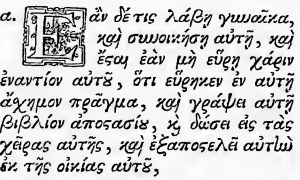 α. Εὰν δέ τις λάβῃ γυναῖκα,
καὶ συνοικήσῃ αὐτῇ, καὶ
ἔσαι ἐὰν μὴ εὕρῃ χάριν
ἐναντίον αὐτῦ, ὅτι εὕρηκεν ἐν αὐτῇ
ἄχημον πρᾶγμα, καὶ γράψει αὐτῇ
βιβλίον ἀποστασίυ, κ̀ δώσει εἰς τὰς
χεῖρας αὐτῆς, καὶ ἐξαποστελεῖ αὐτὴν
ἐκ τῆς οἰκίας αὐτῦ,